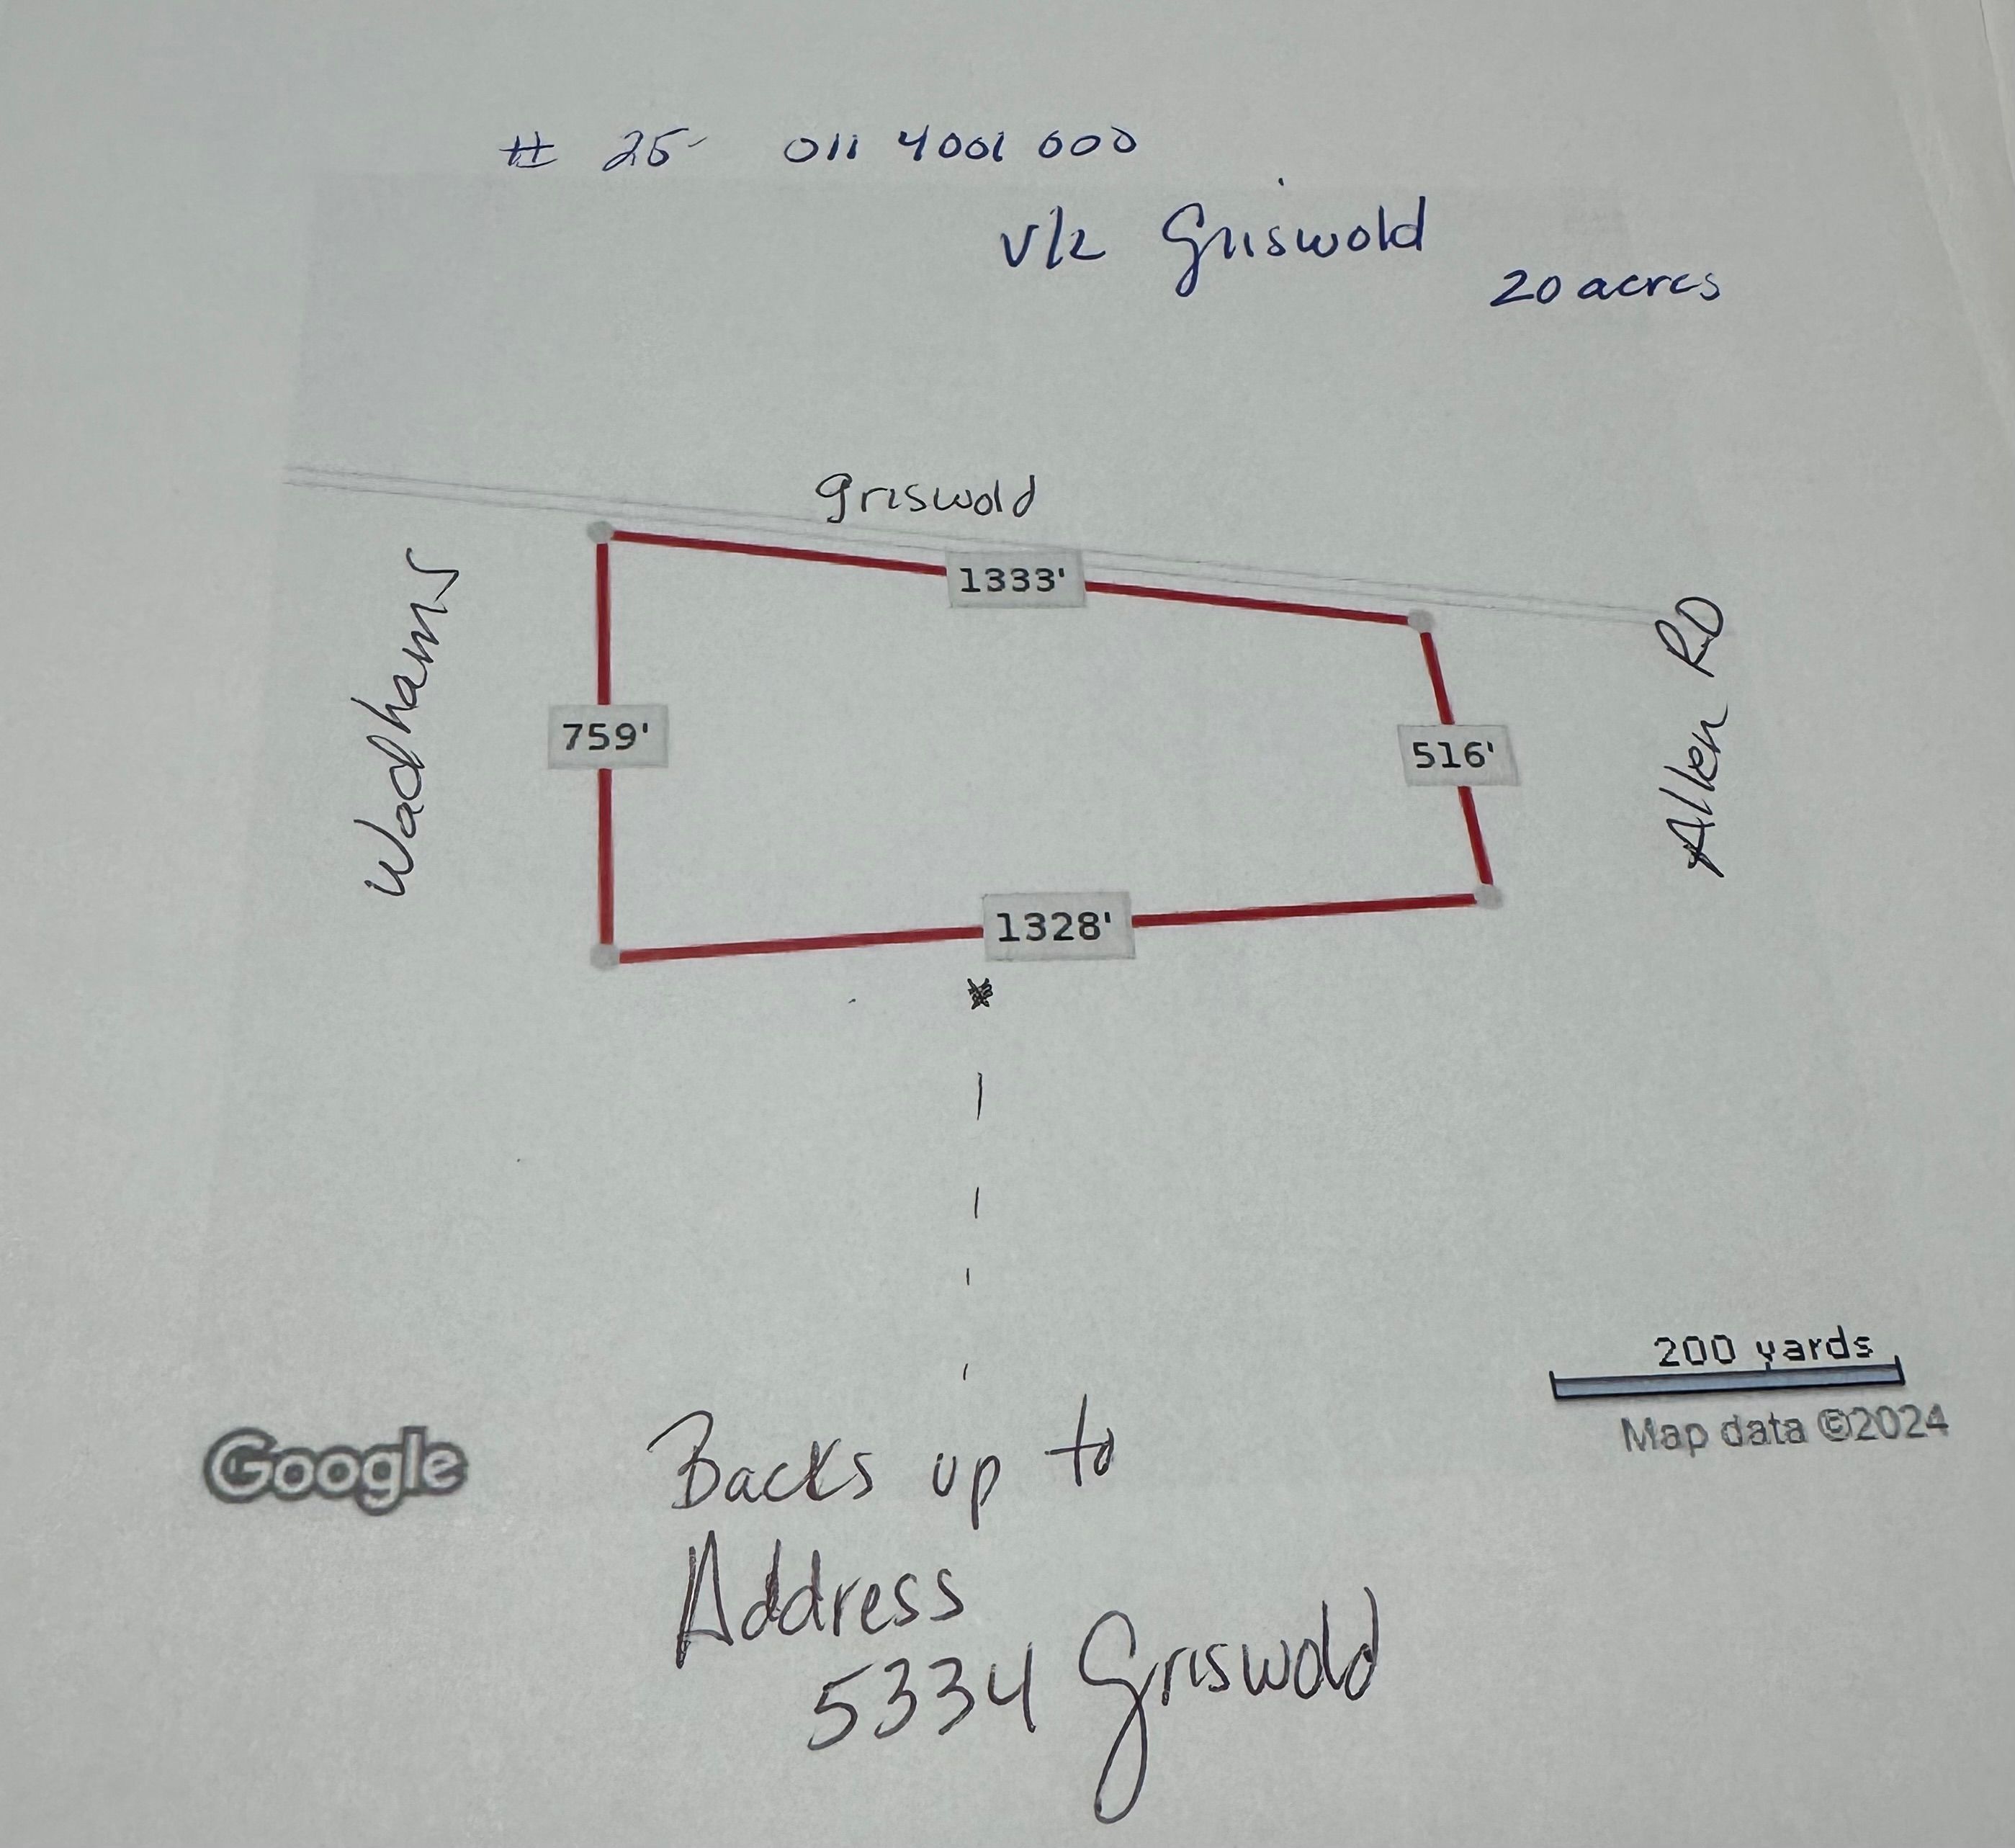 # 25- 011 4001 000
V/L Griswold
20 acres
griswold
1333'
Wadhams
759'
516'
Allen RD
1328'
200 yards
Map data ©2024
Google
Backs up to
Address
5334 Griswold